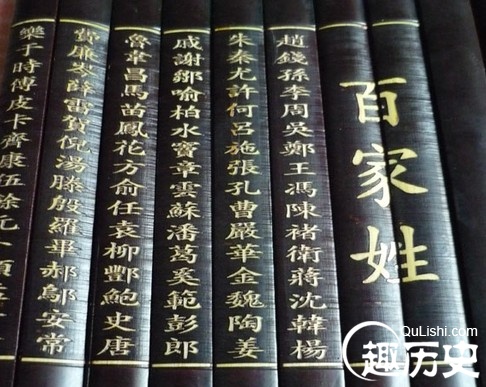 百家姓
趙錢孫李周吳鄭王馮陳褚衛蔣沈韓楊
朱秦尤許何呂施張孔曹嚴華金魏陶姜
戚謝鄒喻柏水竇章雲蘇潘葛奚範彭郎
魯韋昌馬苗鳳花方俞任袁柳酆鮑史唐
費廉岑薛雷賀倪湯滕殷羅畢郝鄔安常
樂于時傅皮卞齊康伍餘元卜顧
QuLishi.com
趣历史